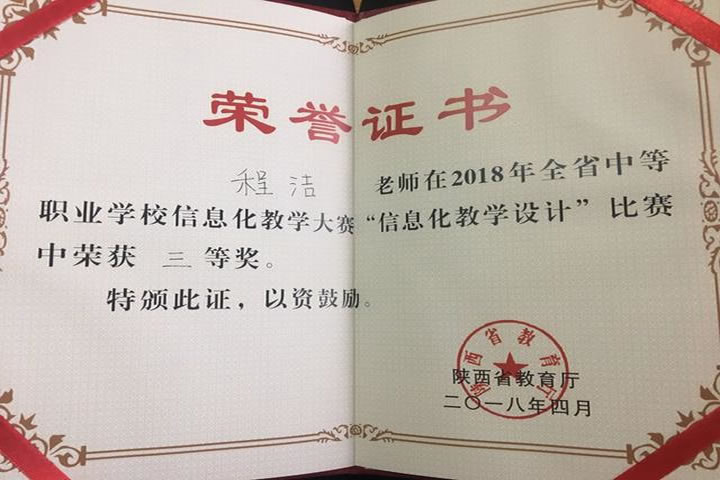 荣誉证书
程洁 老师在2018年全省中等
职业学校信息化教学大赛“信息化教学设计”比赛
中荣获 三 等奖。
特颁此证，以资鼓励。
陕西省教育厅
陕西省教育厅
二〇一八年四月